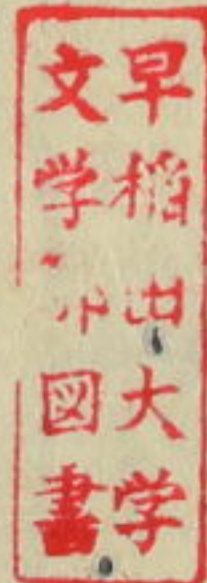 早稲田大学
文学部図書